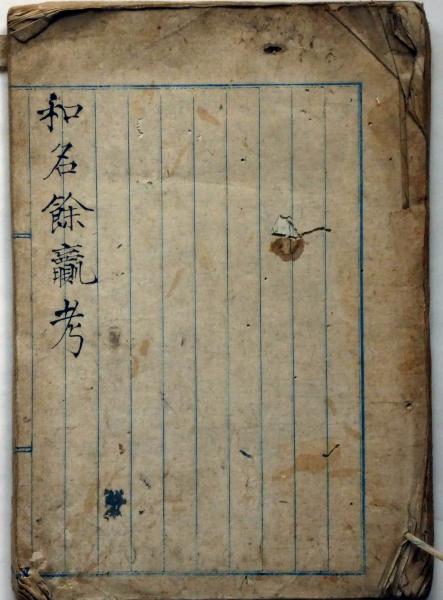 和名餘贏考